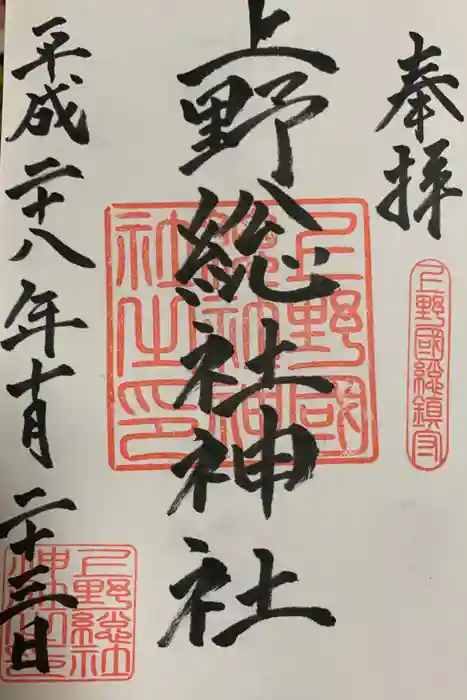 奉拝
上野國総鎮守
上野総社神社
上野國総社神社之印
平成二十八年十月二十三日
上野総社神社